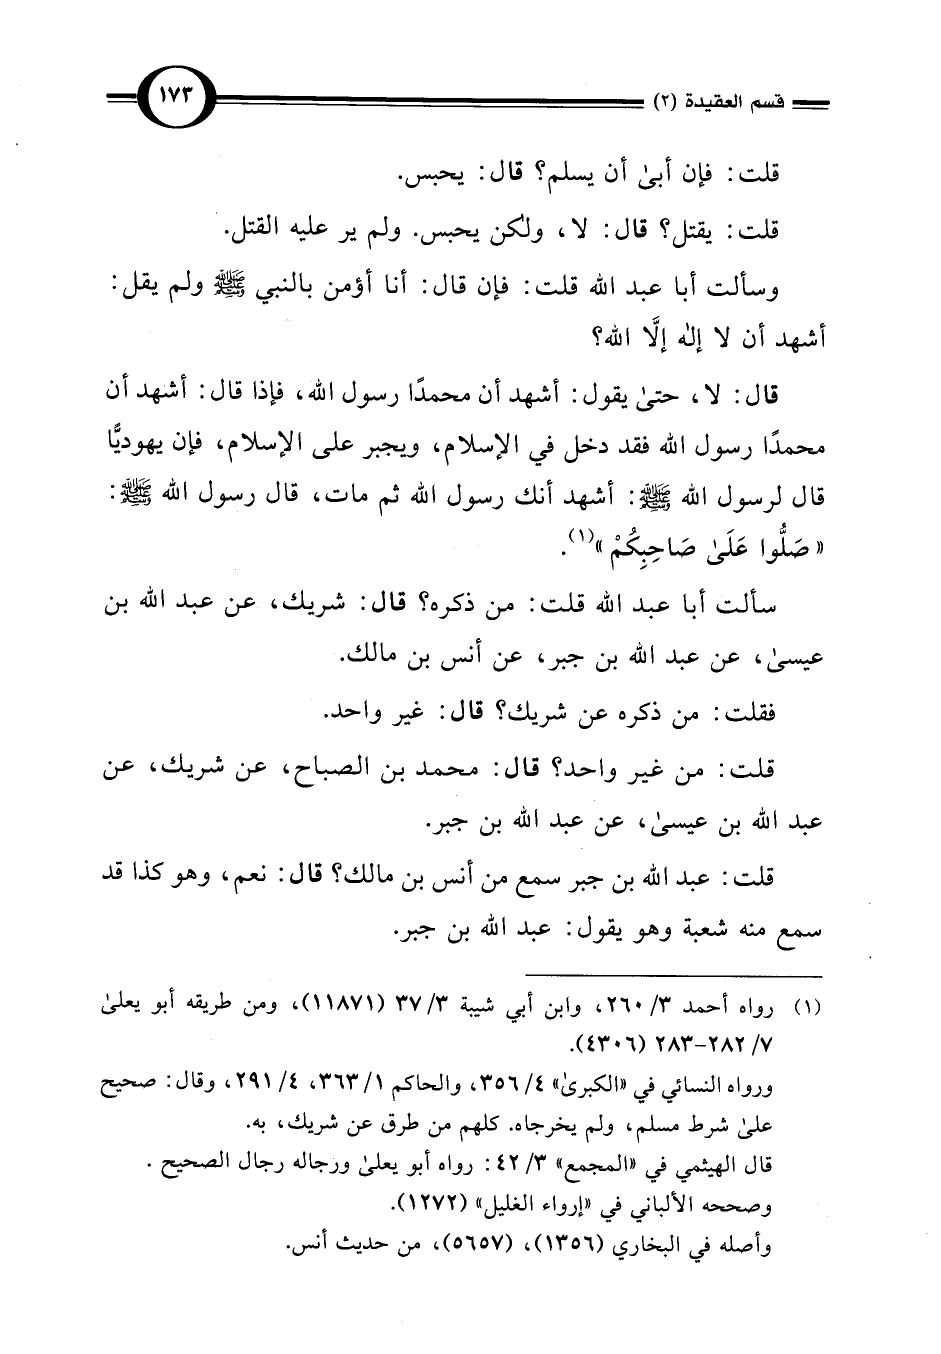 قسم العقيدة (٢)
١٧٣
قلت: فإن أبىٰ أن يسلم؟ قال: يحبس.
قلت: يقتل؟ قال: لا، ولكن يحبس. ولم ير عليه القتل.
وسألت أبا عبد الله قلت: فإن قال: أنا أؤمن بالنبي ﷺ ولم يقل:
أشهد أن لا إلٰه إلَّا الله؟
قال: لا، حتىٰ يقول: أشهد أن محمدًا رسول الله، فإذا قال: أشهد أن
محمدًا رسول الله فقد دخل في الإسلام، ويجبر على الإسلام، فإن يهوديًّا
قال لرسول الله ﷺ: أشهد أنك رسول الله ثم مات، قال رسول الله ﷺ:
«صَلُّوا عَلَىٰ صَاحِبِكُمْ»(١).
سألت أبا عبد الله قلت: من ذكره؟ قال: شريك، عن عبد الله بن
عيسىٰ، عن عبد الله بن جبر، عن أنس بن مالك.
فقلت: من ذكره عن شريك؟ قال: غير واحد.
قلت: من غير واحد؟ قال: محمد بن الصباح، عن شريك، عن
عبد الله بن عيسىٰ، عن عبد الله بن جبر.
قلت: عبد الله بن جبر سمع من أنس بن مالك؟ قال: نعم، وهو كذا قد
سمع منه شعبة وهو يقول: عبد الله بن جبر.
(١) رواه أحمد ٣/ ٢٦٠، وابن أبي شيبة ٣/ ٣٧ (١١٨٧١)، ومن طريقه أبو يعلىٰ
٧/ ٢٨٢-٢٨٣ (٤٣٠٦).
ورواه النسائي في «الكبرىٰ» ٤/ ٣٥٦، والحاكم ١/ ٣٦٣، ٤/ ٢٩١، وقال: صحيح
علىٰ شرط مسلم، ولم يخرجاه. كلهم من طرق عن شريك، به.
قال الهيثمي في «المجمع» ٣/ ٤٢: رواه أبو يعلىٰ ورجاله رجال الصحيح .
وصححه الألباني في «إرواء الغليل» (١٢٧٢).
وأصله في البخاري (١٣٥٦)، (٥٦٥٧)، من حديث أنس.